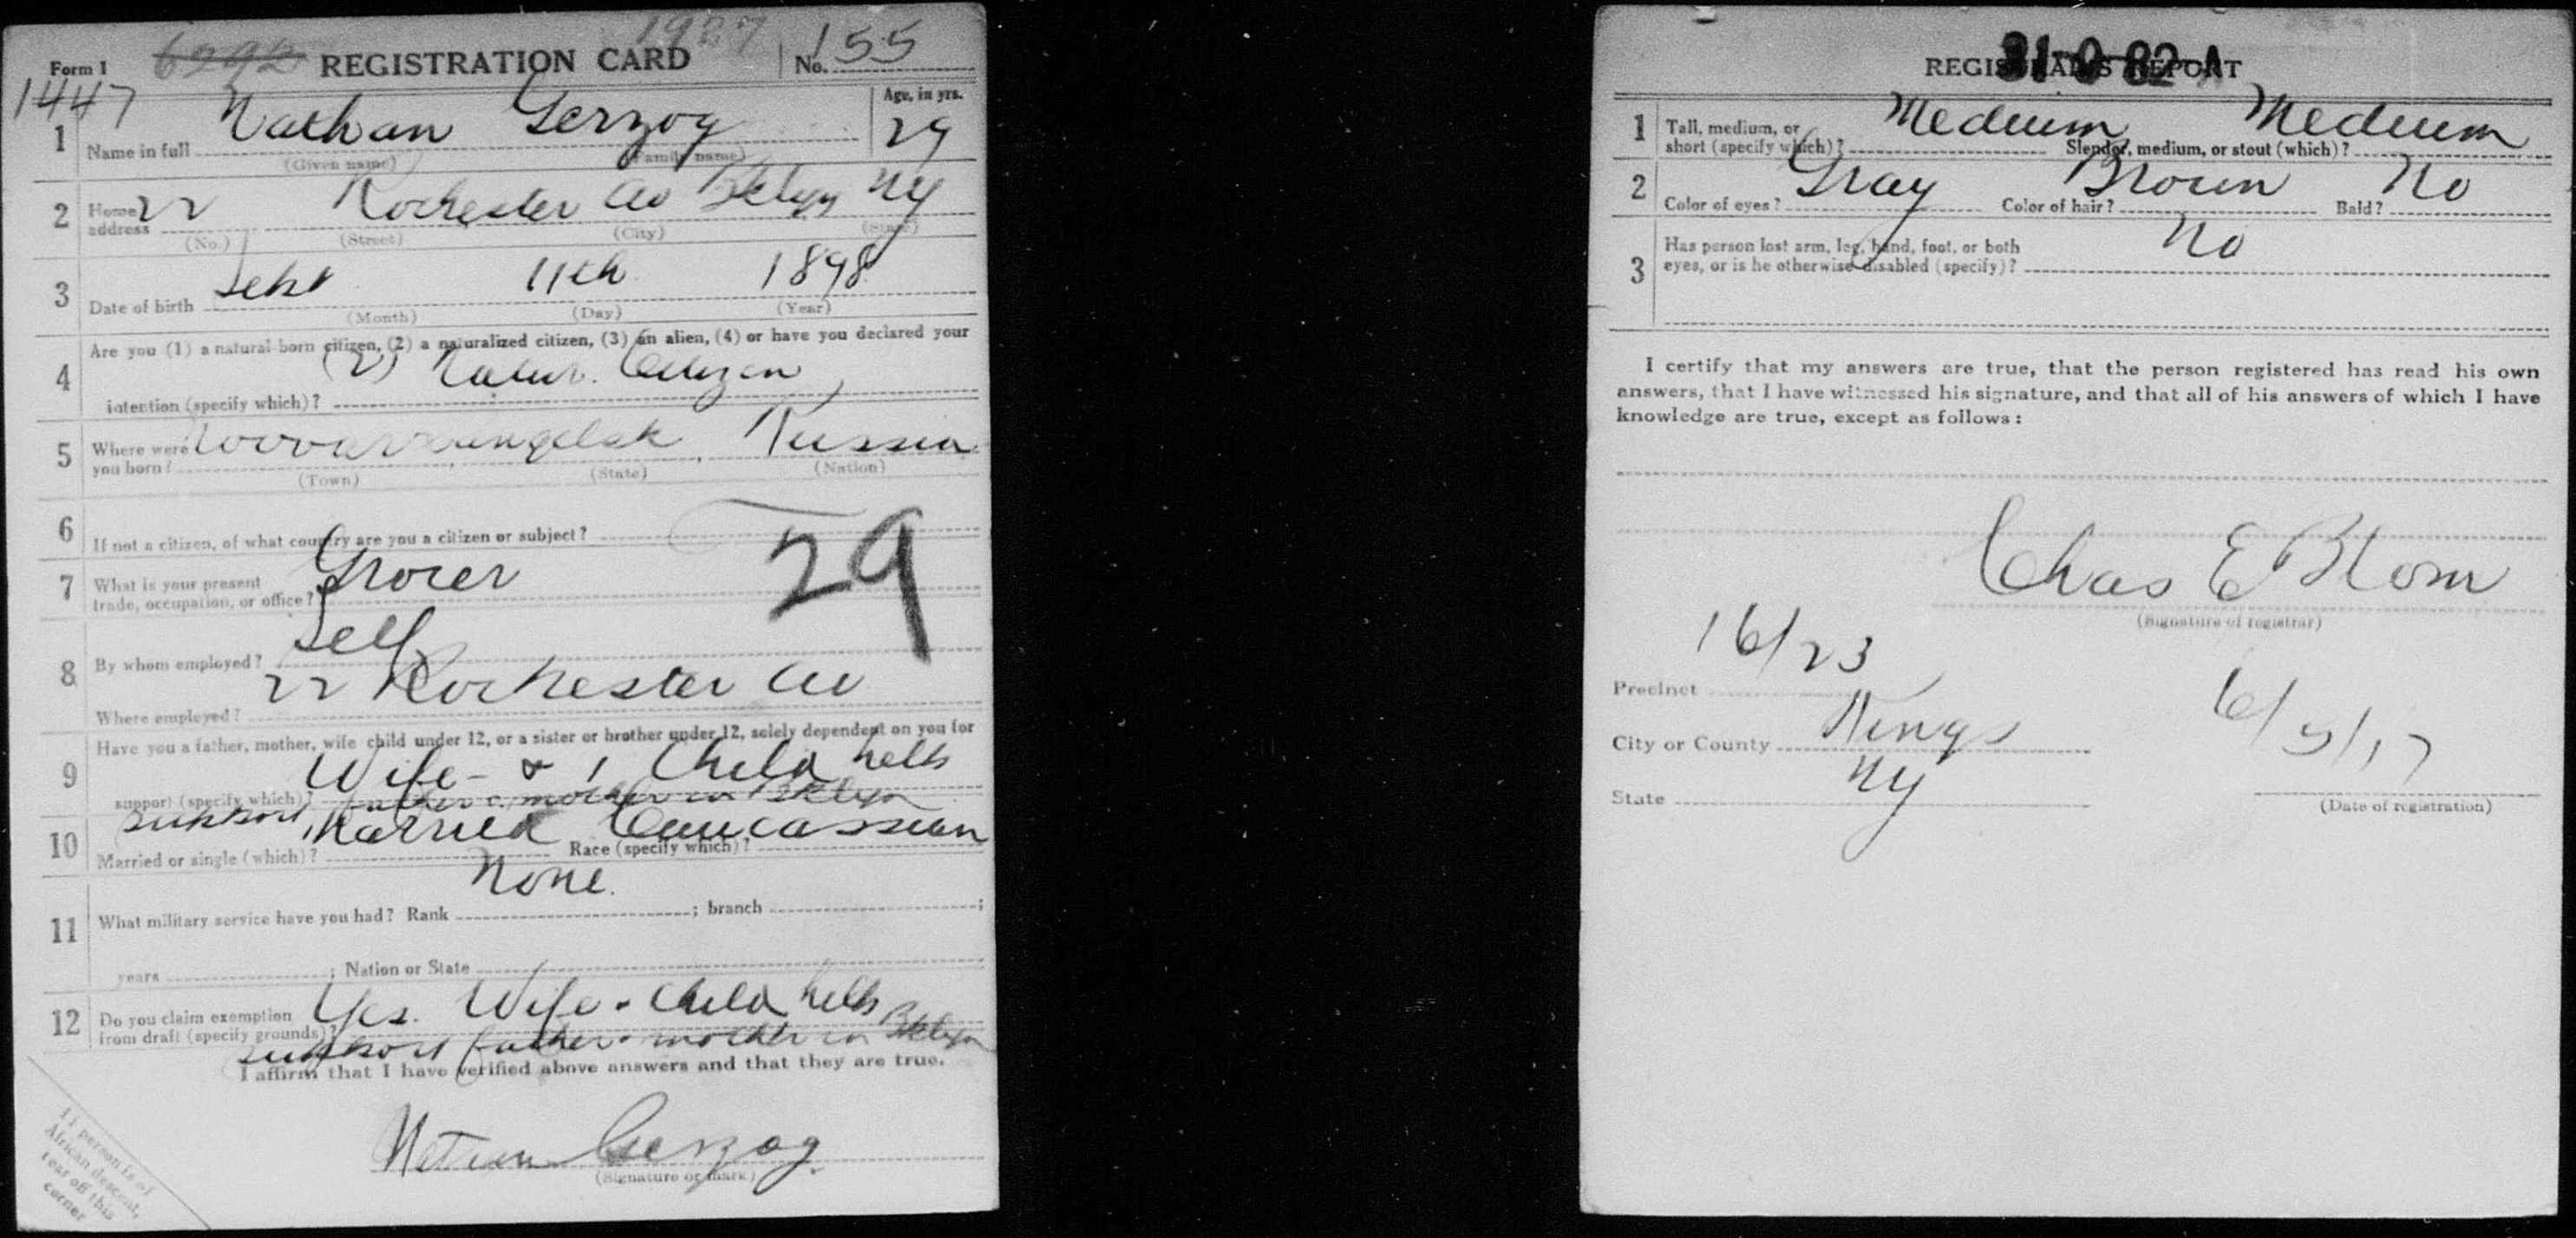 1927
Form 1 6292 REGISTRATION CARD No. 155
1447
1 Name in full Nathan Gerzog Age, in yrs. 29
(Given name) (Family name)
2 Home address 22 Rochester Av Bklyn NY
(No.) (Street) (City) (State)
3 Date of birth Sept 11th 1898
(Month) (Day) (Year)
Are you (1) a natural-born citizen, (2) a naturalized citizen, (3) an alien, (4) or have you declared your
4 (2) Natur. Citizen
intention (specify which)?
5 Where were you born? Russia
(Town) (State) (Nation)
6 If not a citizen, of what country are you a citizen or subject?
29
7 What is your present trade, occupation, or office? Grocer
8 By whom employed? Self
Where employed? 22 Rochester Av
Have you a father, mother, wife child under 12, or a sister or brother under 12, solely dependent on you for
9 Wife - & 1 Child helps
support (specify which)? father & mother in Bklyn
support
10 Married or single (which)? Married Race (specify which)? Caucassian
None.
11 What military service have you had? Rank ; branch ;
years ; Nation or State
12 Do you claim exemption from draft (specify grounds)? Yes. Wife & Child helps
support father & mother in Bklyn
I affirm that I have verified above answers and that they are true.
Gerzog
(Signature or mark)
If person is of
African descent,
tear off this
corner
31-9-82-A
REGISTRAR'S REPORT
1 Tall, medium, or short (specify which)? Medium Slender, medium, or stout (which)? Medium
2 Color of eyes? Gray Color of hair? Brown Bald? No
3 Has person lost arm, leg, hand, foot, or both
eyes, or is he otherwise disabled (specify)? No
I certify that my answers are true, that the person registered has read his own
answers, that I have witnessed his signature, and that all of his answers of which I have
knowledge are true, except as follows:
Chas E Blom
(Signature of registrar)
Precinct 16/23
City or County Kings 6/5/17
State NY
(Date of registration)